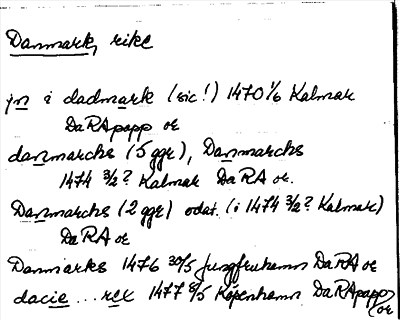 Danmark, rike
jn i dadmark (sic!) 1470 1/6 Kalmar
DaRApapp or
danmarchs (5 ggr), Danmarchs
1474 3/2? Kalmar DaRA or.
Danmarchs (2 ggr) odat. (i 1474 3/2? Kalmar)
DaRA or
Danmarks 1476 30/5 Jungfruhamn DaRA or
dacie ... rex 1477 8/5 Köpenhamn DaRApapp
or